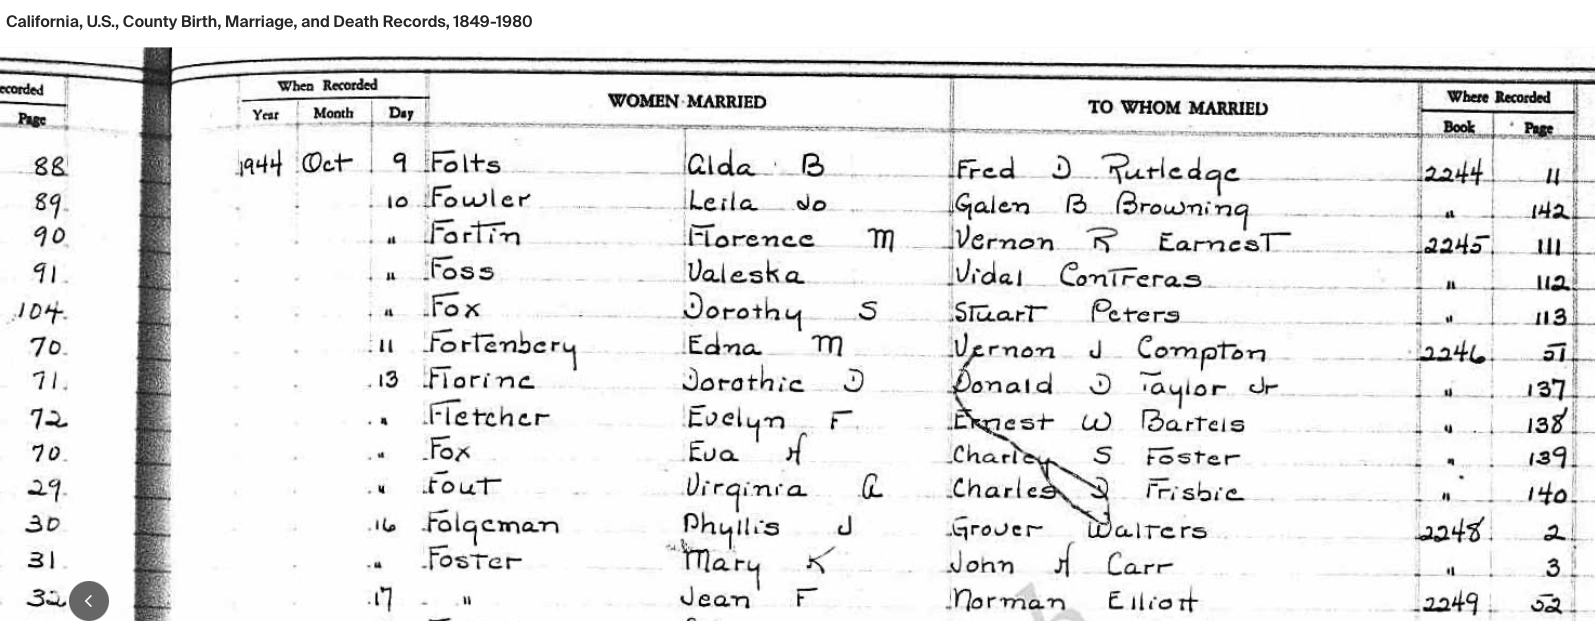 California, U.S., County Birth, Marriage, and Death Records, 1849-1980
ecorded When Recorded WOMEN MARRIED TO WHOM MARRIED Where Recorded
Page Year Month Day Book Page
88 1944 Oct 9 Folts Alda B Fred D Rutledge 2244 11
89 10 Fowler Leila Jo Galen B Browning " 142
90 " Fortin Florence M Vernon R Earnest 2245 111
91 " Foss Valeska Vidal Contreras " 112
104 " Fox Dorothy S Stuart Peters " 113
70 11 Fortenbery Edna M Vernon J Compton 2246 51
71 13 Florine Dorothie D Donald D Taylor Jr " 137
72 " Fletcher Evelyn F Ernest W Bartels " 138
70 " Fox Eva H Charley S Foster " 139
29 " Fout Virginia A Charles D Frisbie " 140
30 16 Folgeman Phyllis J Grover Walters 2248 2
31 " Foster Mary K John H Carr " 3
32 17 " Jean F Norman Elliott 2249 52